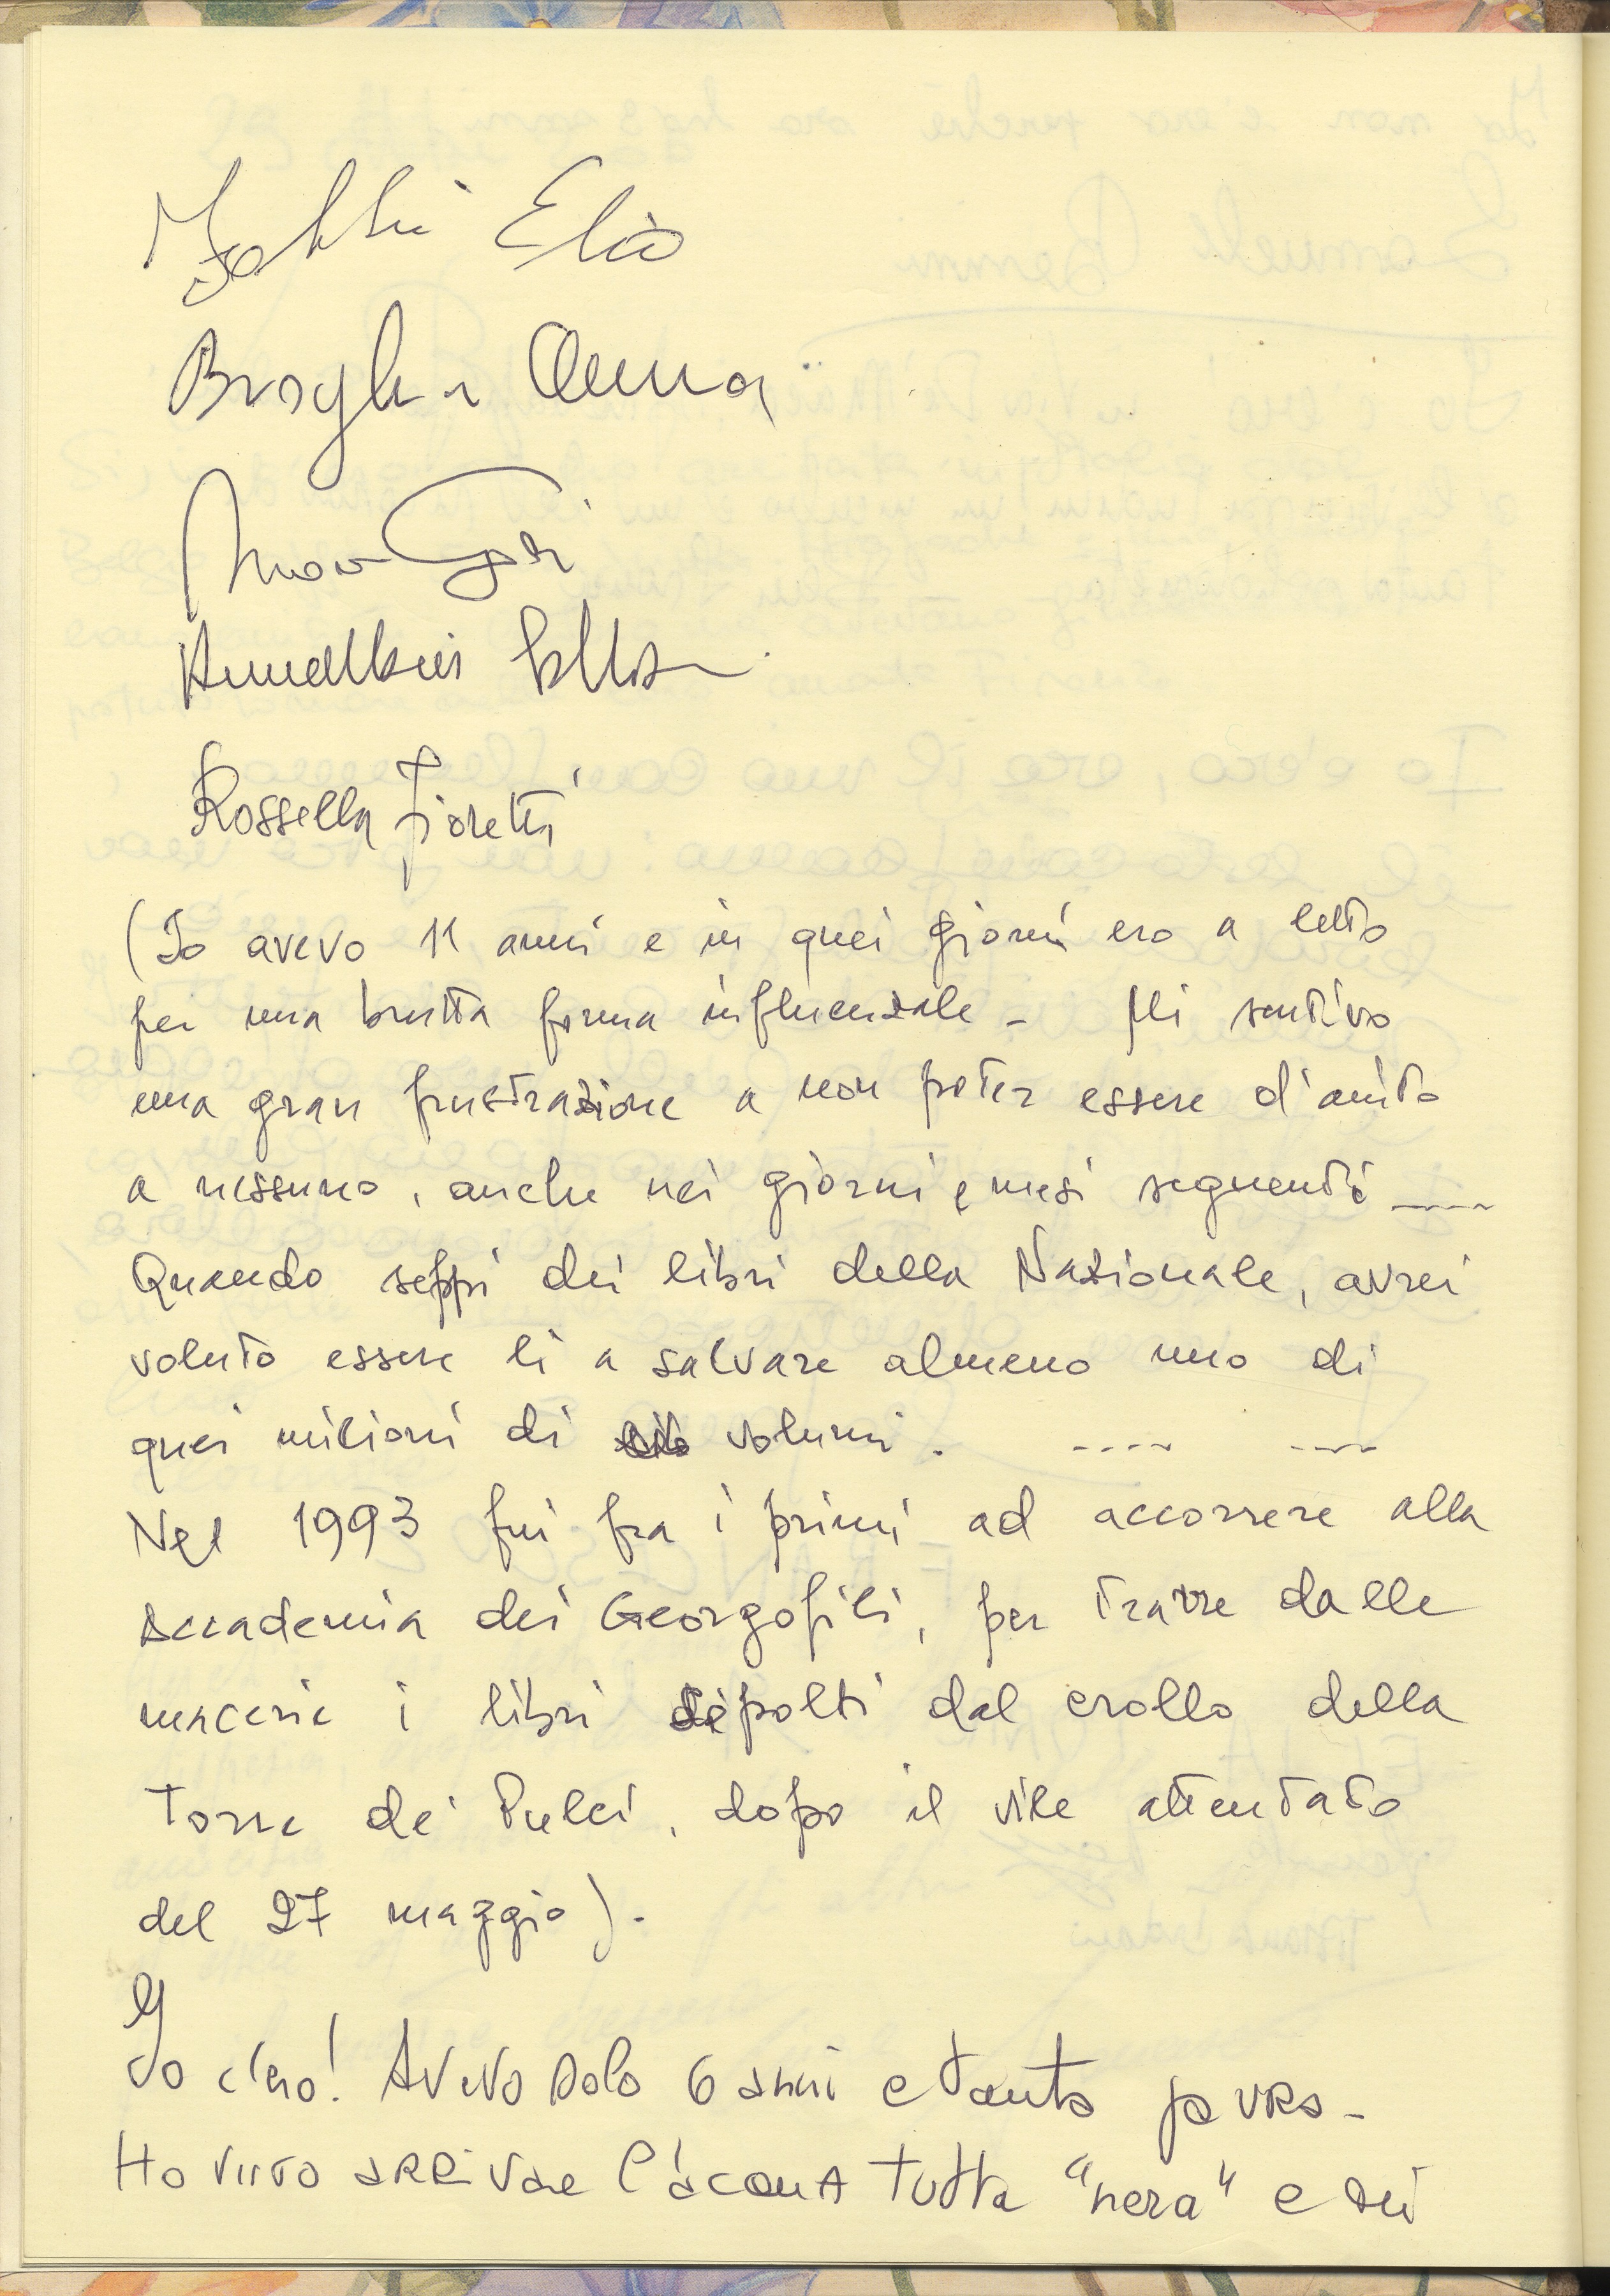 Elio
Anna
Rossella Fioretti
(Io avevo 11 anni e in quei giorni ero a letto
per una brutta forma influenzale - Mi sentivo
una gran frustrazione a non poter essere d'aiuto
a nessuno, anche nei giorni e mesi seguenti ----
Quando seppi dei libri della Nazionale, avrei
voluto essere lì a salvare almeno uno di
quei milioni di volumi. ---- ----
Nel 1993 fui fra i primi ad accorrere alla
Accademia dei Georgofili, per trarre dalle
macerie i libri sepolti dal crollo della
Torre de' Pulci, dopo il vile attentato
del 27 maggio).
Io c'ero! Avevo solo 6 anni e tanta paura -
Ho visto arrivare l'acqua tutta "nera" e